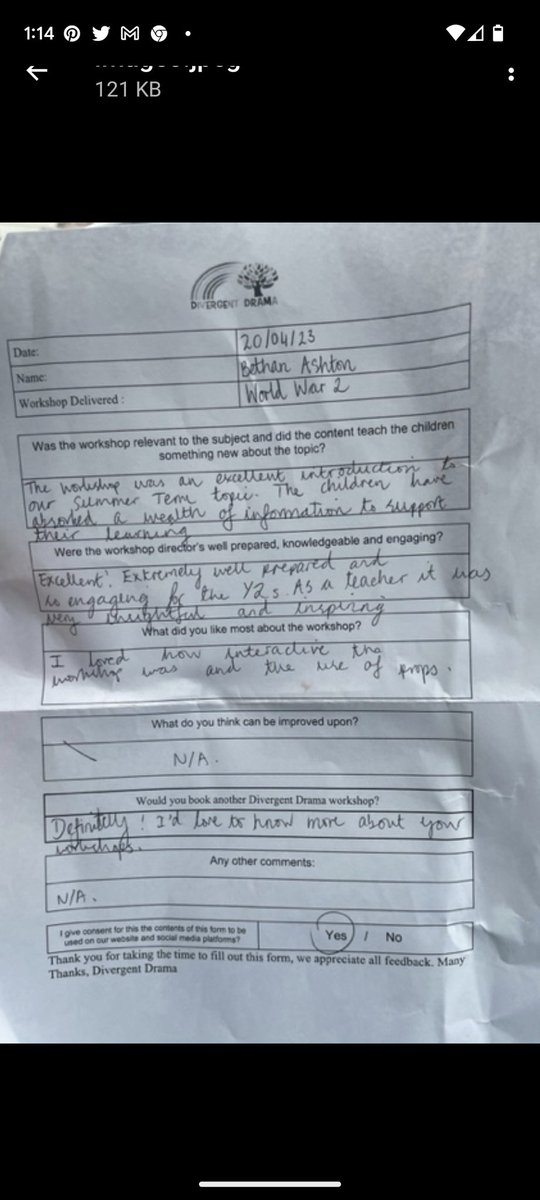 1:14
121 KB
DIVERGENT DRAMA
Date: 20/04/23
Name: Bethan Ashton
Workshop Delivered : World War 2
Was the workshop relevant to the subject and did the content teach the children
something new about the topic?
The workshop was an excellent introduction to
our Summer Term topic. The children have
absorbed a wealth of information to support
their learning
Were the workshop director's well prepared, knowledgeable and engaging?
Excellent! Extremely well prepared and
so engaging for the Y2s. As a teacher it was
very insightful and inspiring
What did you like most about the workshop?
I loved how interactive the
workshop was and the use of props.
What do you think can be improved upon?
N/A.
Would you book another Divergent Drama workshop?
Definitely! I'd love to know more about your
workshops.
Any other comments:
N/A.
I give consent for this the contents of this form to be
used on our website and social media platforms?
Yes / No
Thank you for taking the time to fill out this form, we appreciate all feedback. Many
Thanks, Divergent Drama